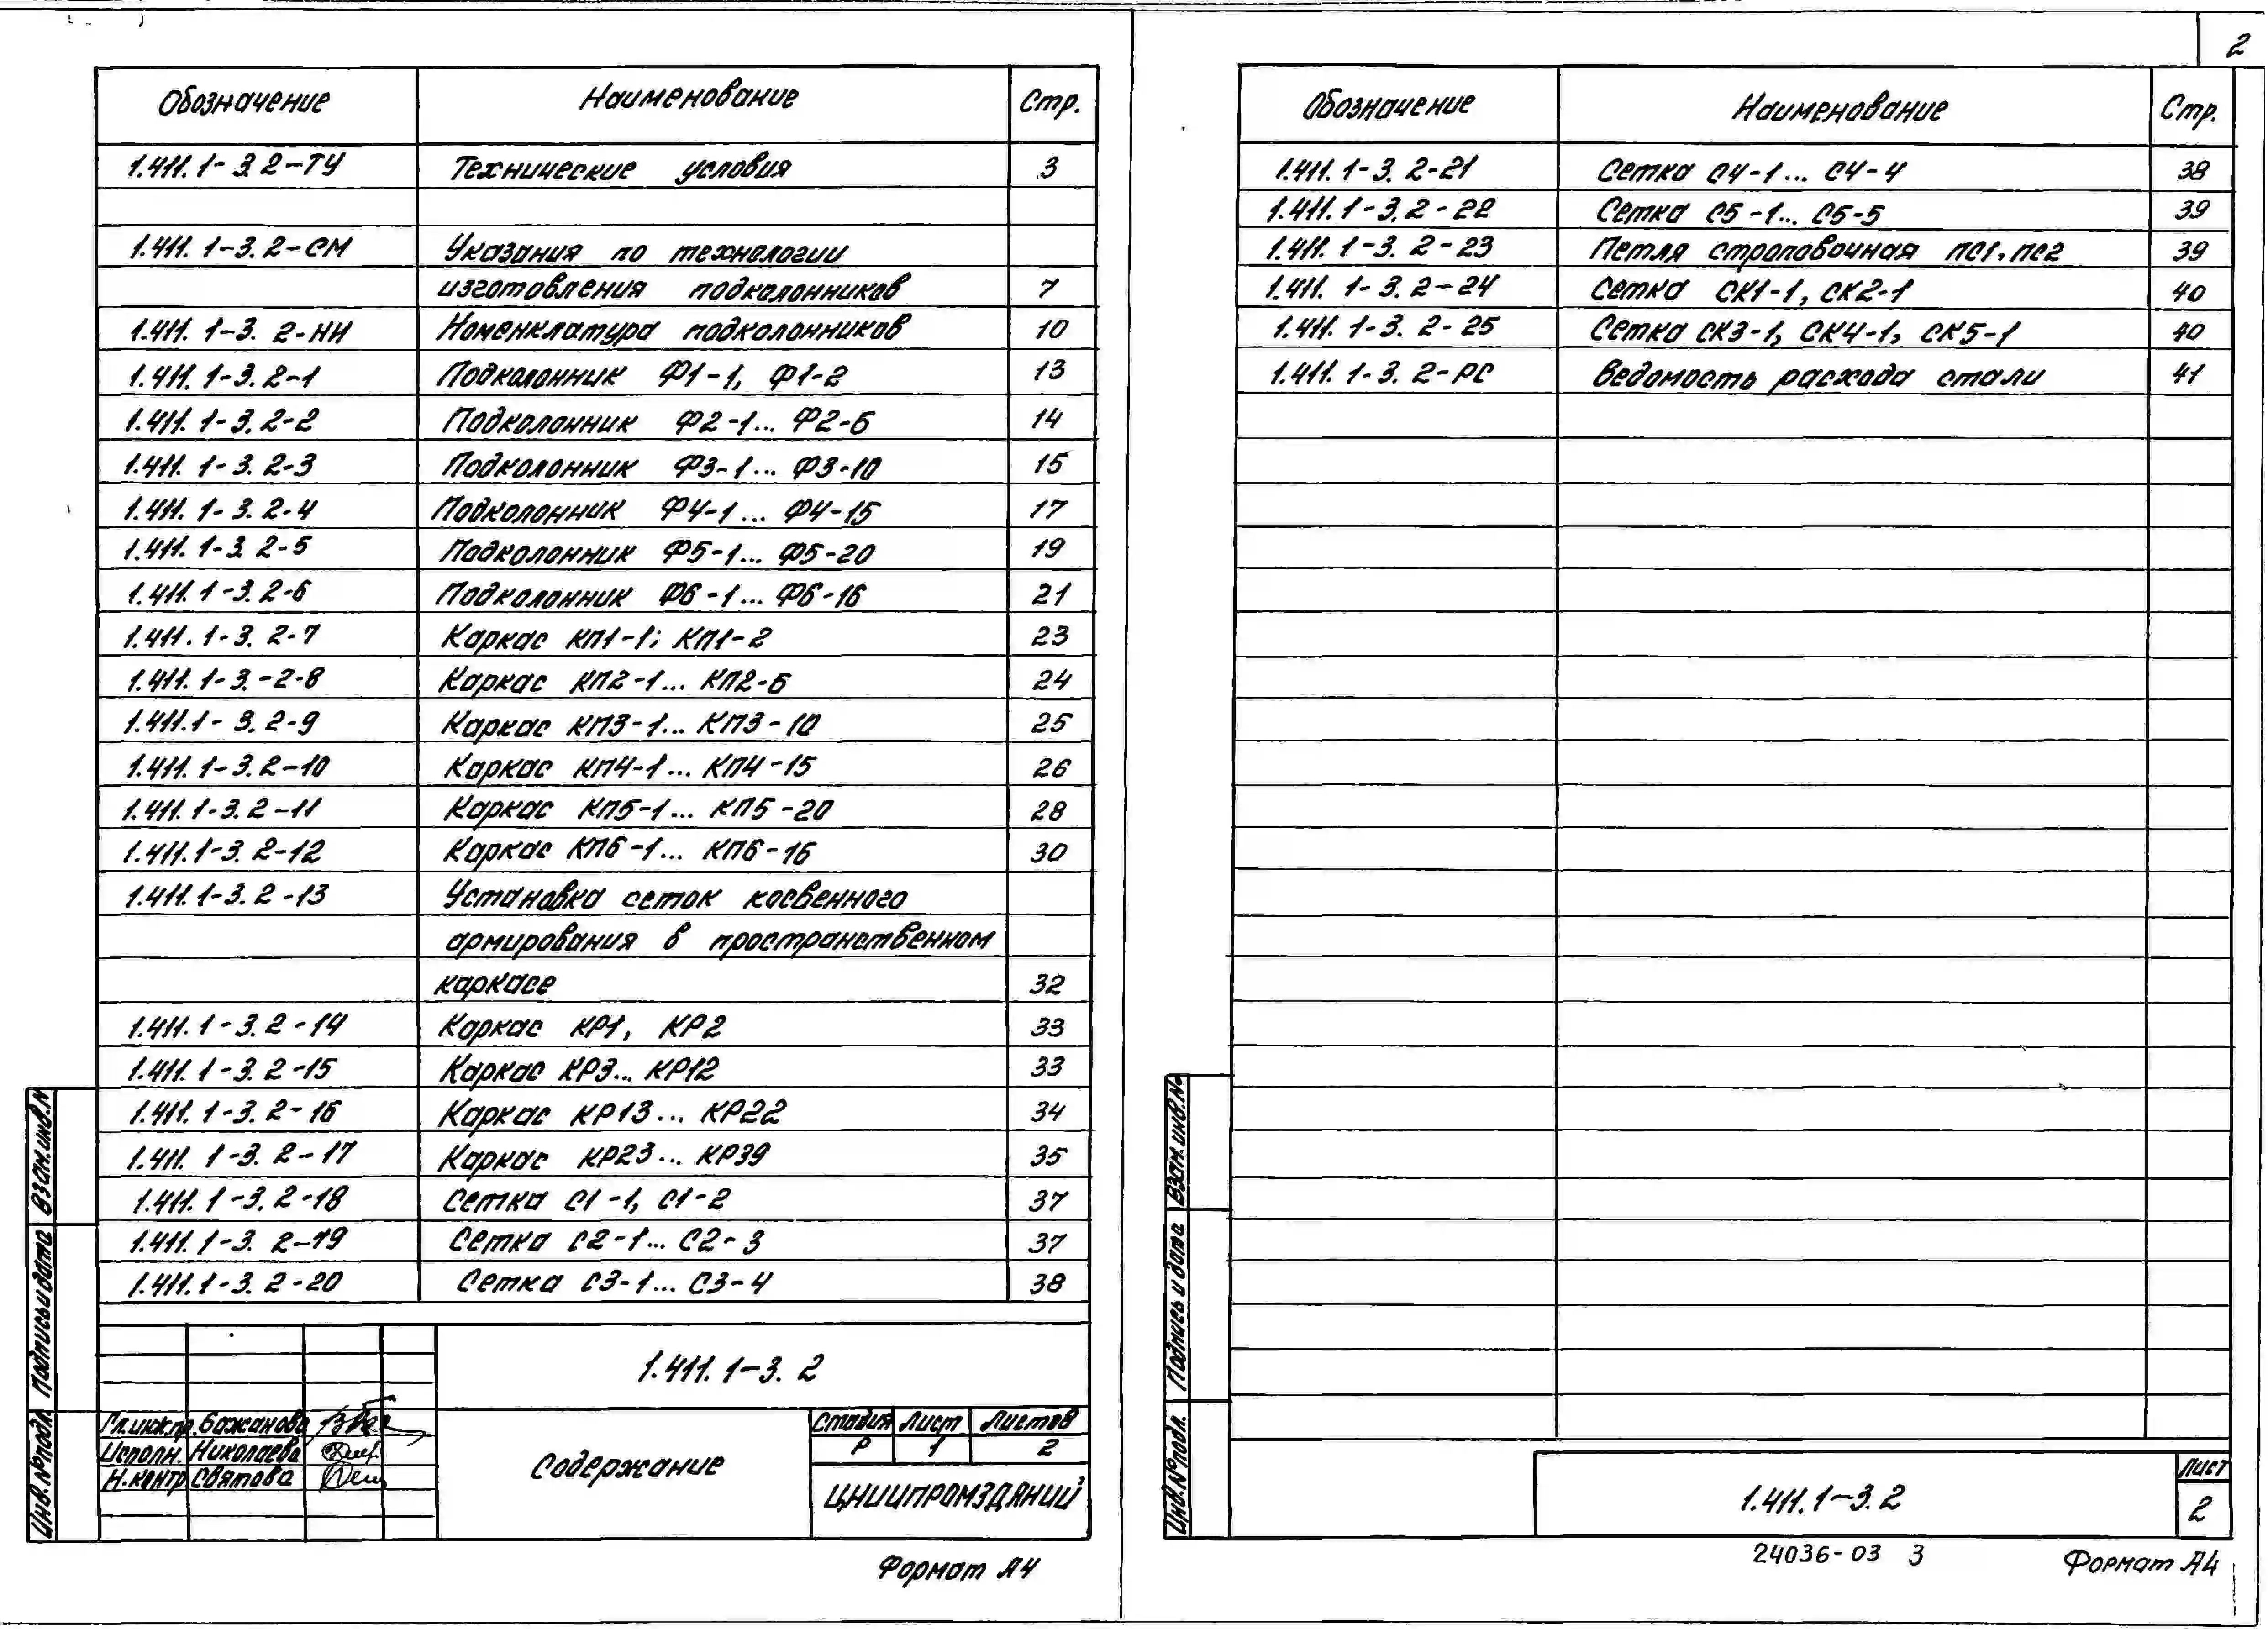 2
Обозначение Наименование Стр.
1.411.1-3.2-ТУ Технические условия 3
1.411.1-3.2-СМ Указания по технологии
изготовления подколонников 7
1.411.1-3.2-НИ Номенклатура подколонников 10
1.411.1-3.2-1 Подколонник Ф1-1, Ф1-2 13
1.411.1-3.2-2 Подколонник Ф2-1... Ф2-6 14
1.411.1-3.2-3 Подколонник Ф3-1... Ф3-10 15
1.411.1-3.2-4 Подколонник Ф4-1... Ф4-15 17
1.411.1-3.2-5 Подколонник Ф5-1... Ф5-20 19
1.411.1-3.2-6 Подколонник Ф6-1... Ф6-16 21
1.411.1-3.2-7 Каркас КП1-1; КП1-2 23
1.411.1-3.-2-8 Каркас КП2-1... КП2-6 24
1.411.1-3.2-9 Каркас КП3-1... КП3-10 25
1.411.1-3.2-10 Каркас КП4-1... КП4-15 26
1.411.1-3.2-11 Каркас КП5-1... КП5-20 28
1.411.1-3.2-12 Каркас КП6-1... КП6-16 30
1.411.1-3.2-13 Установка сеток косвенного
армирования в пространственном
каркасе 32
1.411.1-3.2-14 Каркас КР1, КР2 33
1.411.1-3.2-15 Каркас КР3... КР12 33
1.411.1-3.2-16 Каркас КР13... КР22 34
1.411.1-3.2-17 Каркас КР23... КР39 35
1.411.1-3.2-18 Сетка С1-1, С1-2 37
1.411.1-3.2-19 Сетка С2-1... С2-3 37
1.411.1-3.2-20 Сетка С3-1... С3-4 38
Взам.инв.N
Подпись и дата
Инв.№подл.
1.411.1-3.2
Гл.инж.пр. Бажанова
Исполн. Николаева
Н.контр. Святова
Содержание
Стадия Лист Листов
Р 1 2
ЦНИИПРОМЗДАНИЙ
Формат А4
Обозначение Наименование Стр.
1.411.1-3.2-21 Сетка С4-1... С4-4 38
1.411.1-3.2-22 Сетка С5-1... С5-5 39
1.411.1-3.2-23 Петля строповочная ПС1, ПС2 39
1.411.1-3.2-24 Сетка СК1-1, СК2-1 40
1.411.1-3.2-25 Сетка СК3-1, СК4-1, СК5-1 40
1.411.1-3.2-РС Ведомость расхода стали 41
Взам.инв.№
Подпись и дата
Инв.№подл.
1.411.1-3.2
Лист
2
24036-03 3
Формат А4